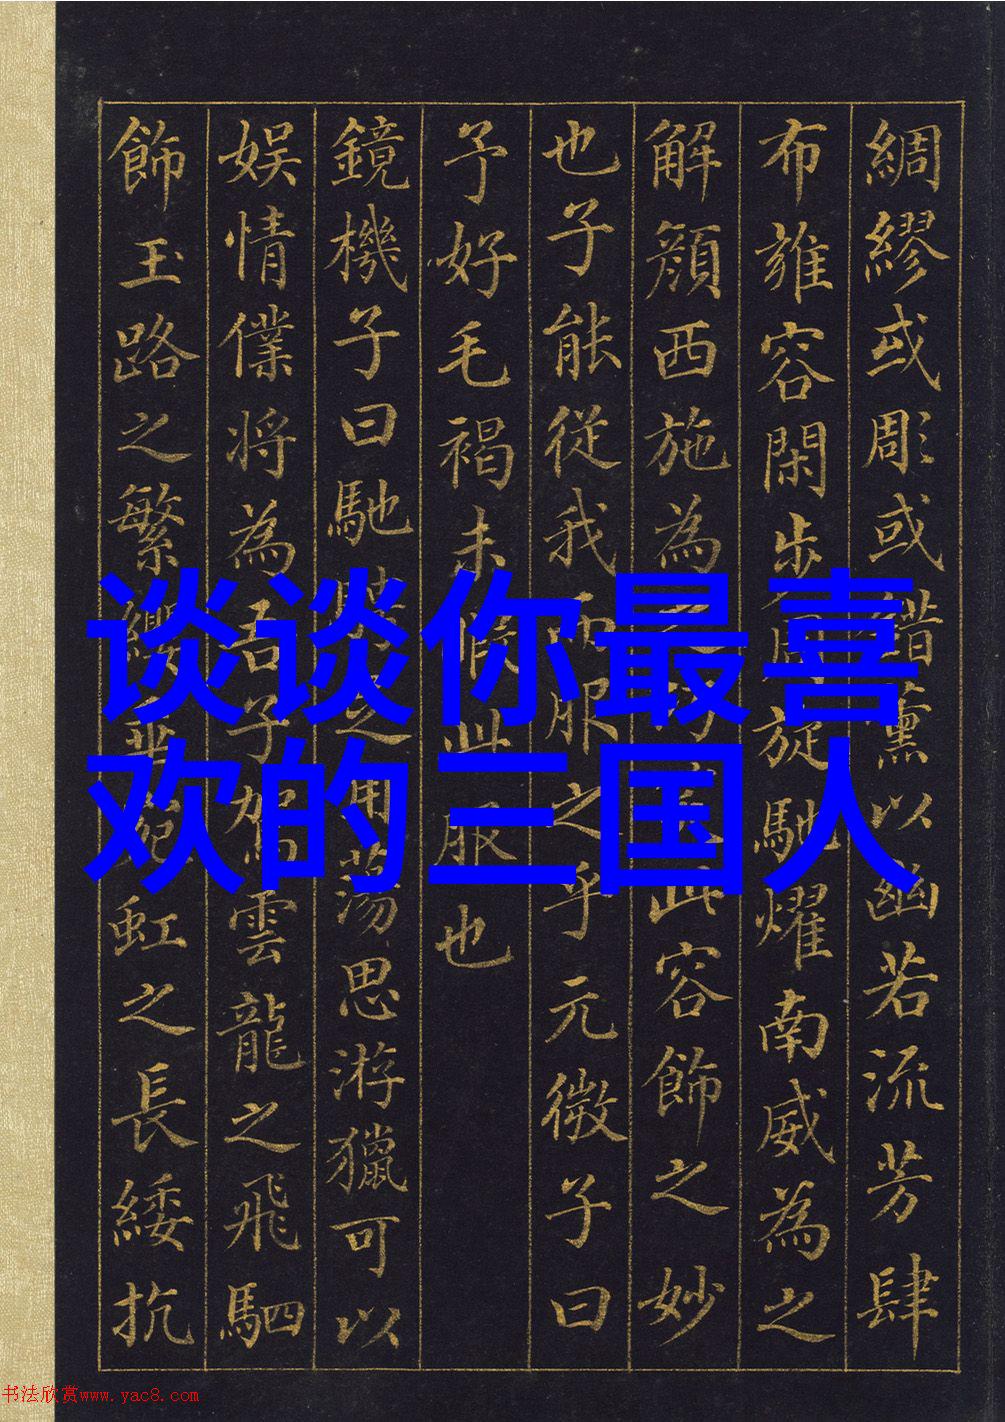 綢繆或彫或錯薰以幽若流芳肆
布雍容閑步周旋馳燿南威為之
解顏西施為之巧笑此容飾之妙
也子能從我而服之乎元微子曰
予好毛褐未暇此服也
鏡機子曰馳騁之用蕩思游獵可以
娛情僕將為吾子駕雲龍之飛駟
飾玉路之繁纓垂宛虹之長綏抗
谈谈你最喜
欢的三国人
书法欣赏www.yac8.com